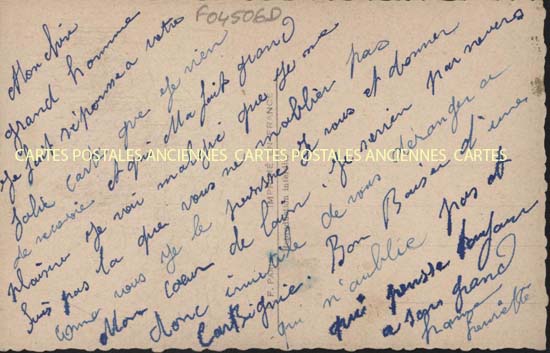 F04506D
Mon chéri
grand homme
Je fait réponse a votre
Jolie carte que Je vien
de recevoir et qui Ma fait grand
plaisir Je voir malgré que Je ne
suis pas la que vous ne m'oublier pas
come vous Je le pense Je vous et donner
Mon coeur de loin Je serien par nevers
donc inutile de vous déranger a
Carbignie. Bon Baiser d'une
qui n'aublie pas et
qui pensse toujour
a son grand
homme
henriette
CARTES POSTALES ANCIENNES CARTES POSTALES ANCIENNES CARTES